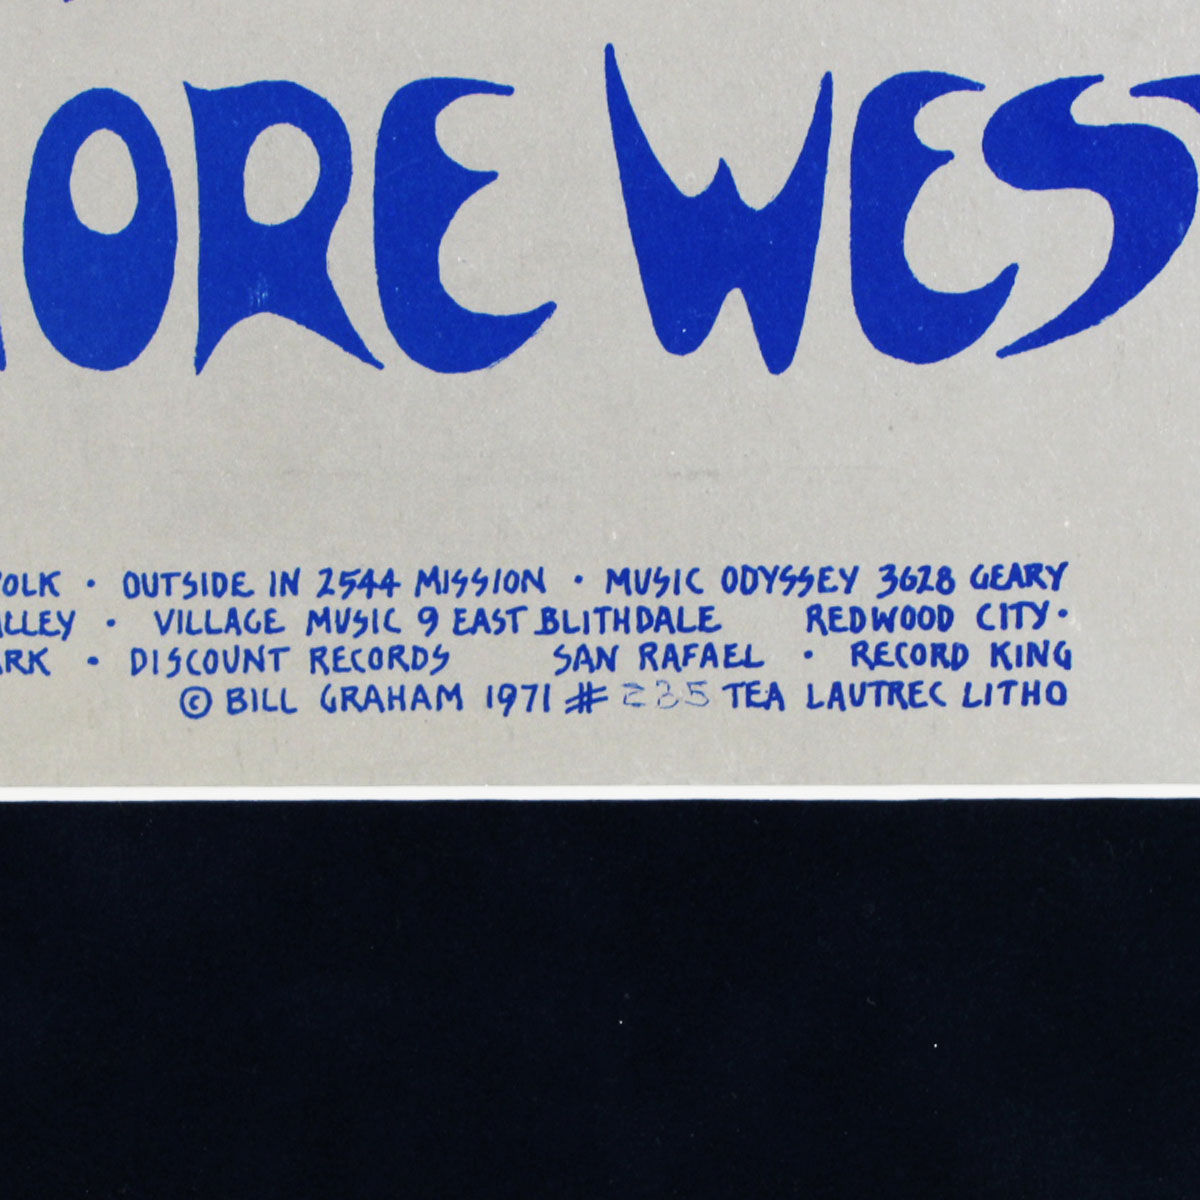 ORE WEST
OLK • OUTSIDE IN 2544 MISSION • MUSIC ODYSSEY 3628 GEARY
LLEY • VILLAGE MUSIC 9 EAST BLITHDALE REDWOOD CITY •
ARK • DISCOUNT RECORDS SAN RAFAEL • RECORD KING
© BILL GRAHAM 1971 # 235 TEA LAUTREC LITHO